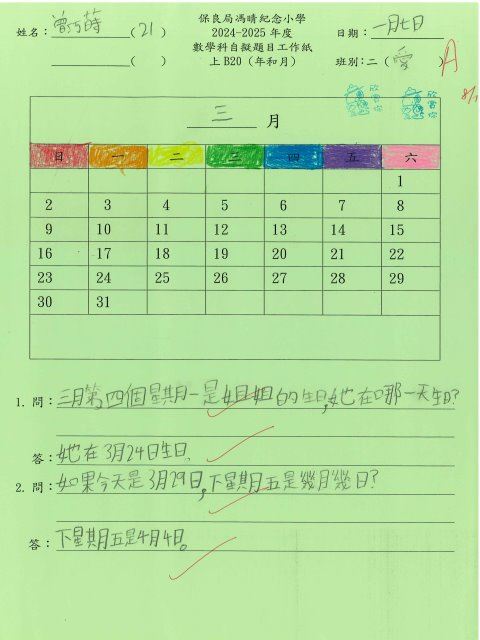 保良局馮晴紀念小學
姓名：曾 (21) 2024-2025 年度 日期：一月七日
數學科自擬題目工作紙
( ) 上 B20（年和月） 班別：二（愛） A
欣賞你 欣賞你
8/1
三 月
日 一 二 三 四 五 六
1
2 3 4 5 6 7 8
9 10 11 12 13 14 15
16 17 18 19 20 21 22
23 24 25 26 27 28 29
30 31
1. 問：三月第四個星期一是姐姐的生日,她在哪一天生日?
答：她在3月24日生日.
2. 問：如果今天是3月29日,下星期五是幾月幾日?
答：下星期五是4月4日。